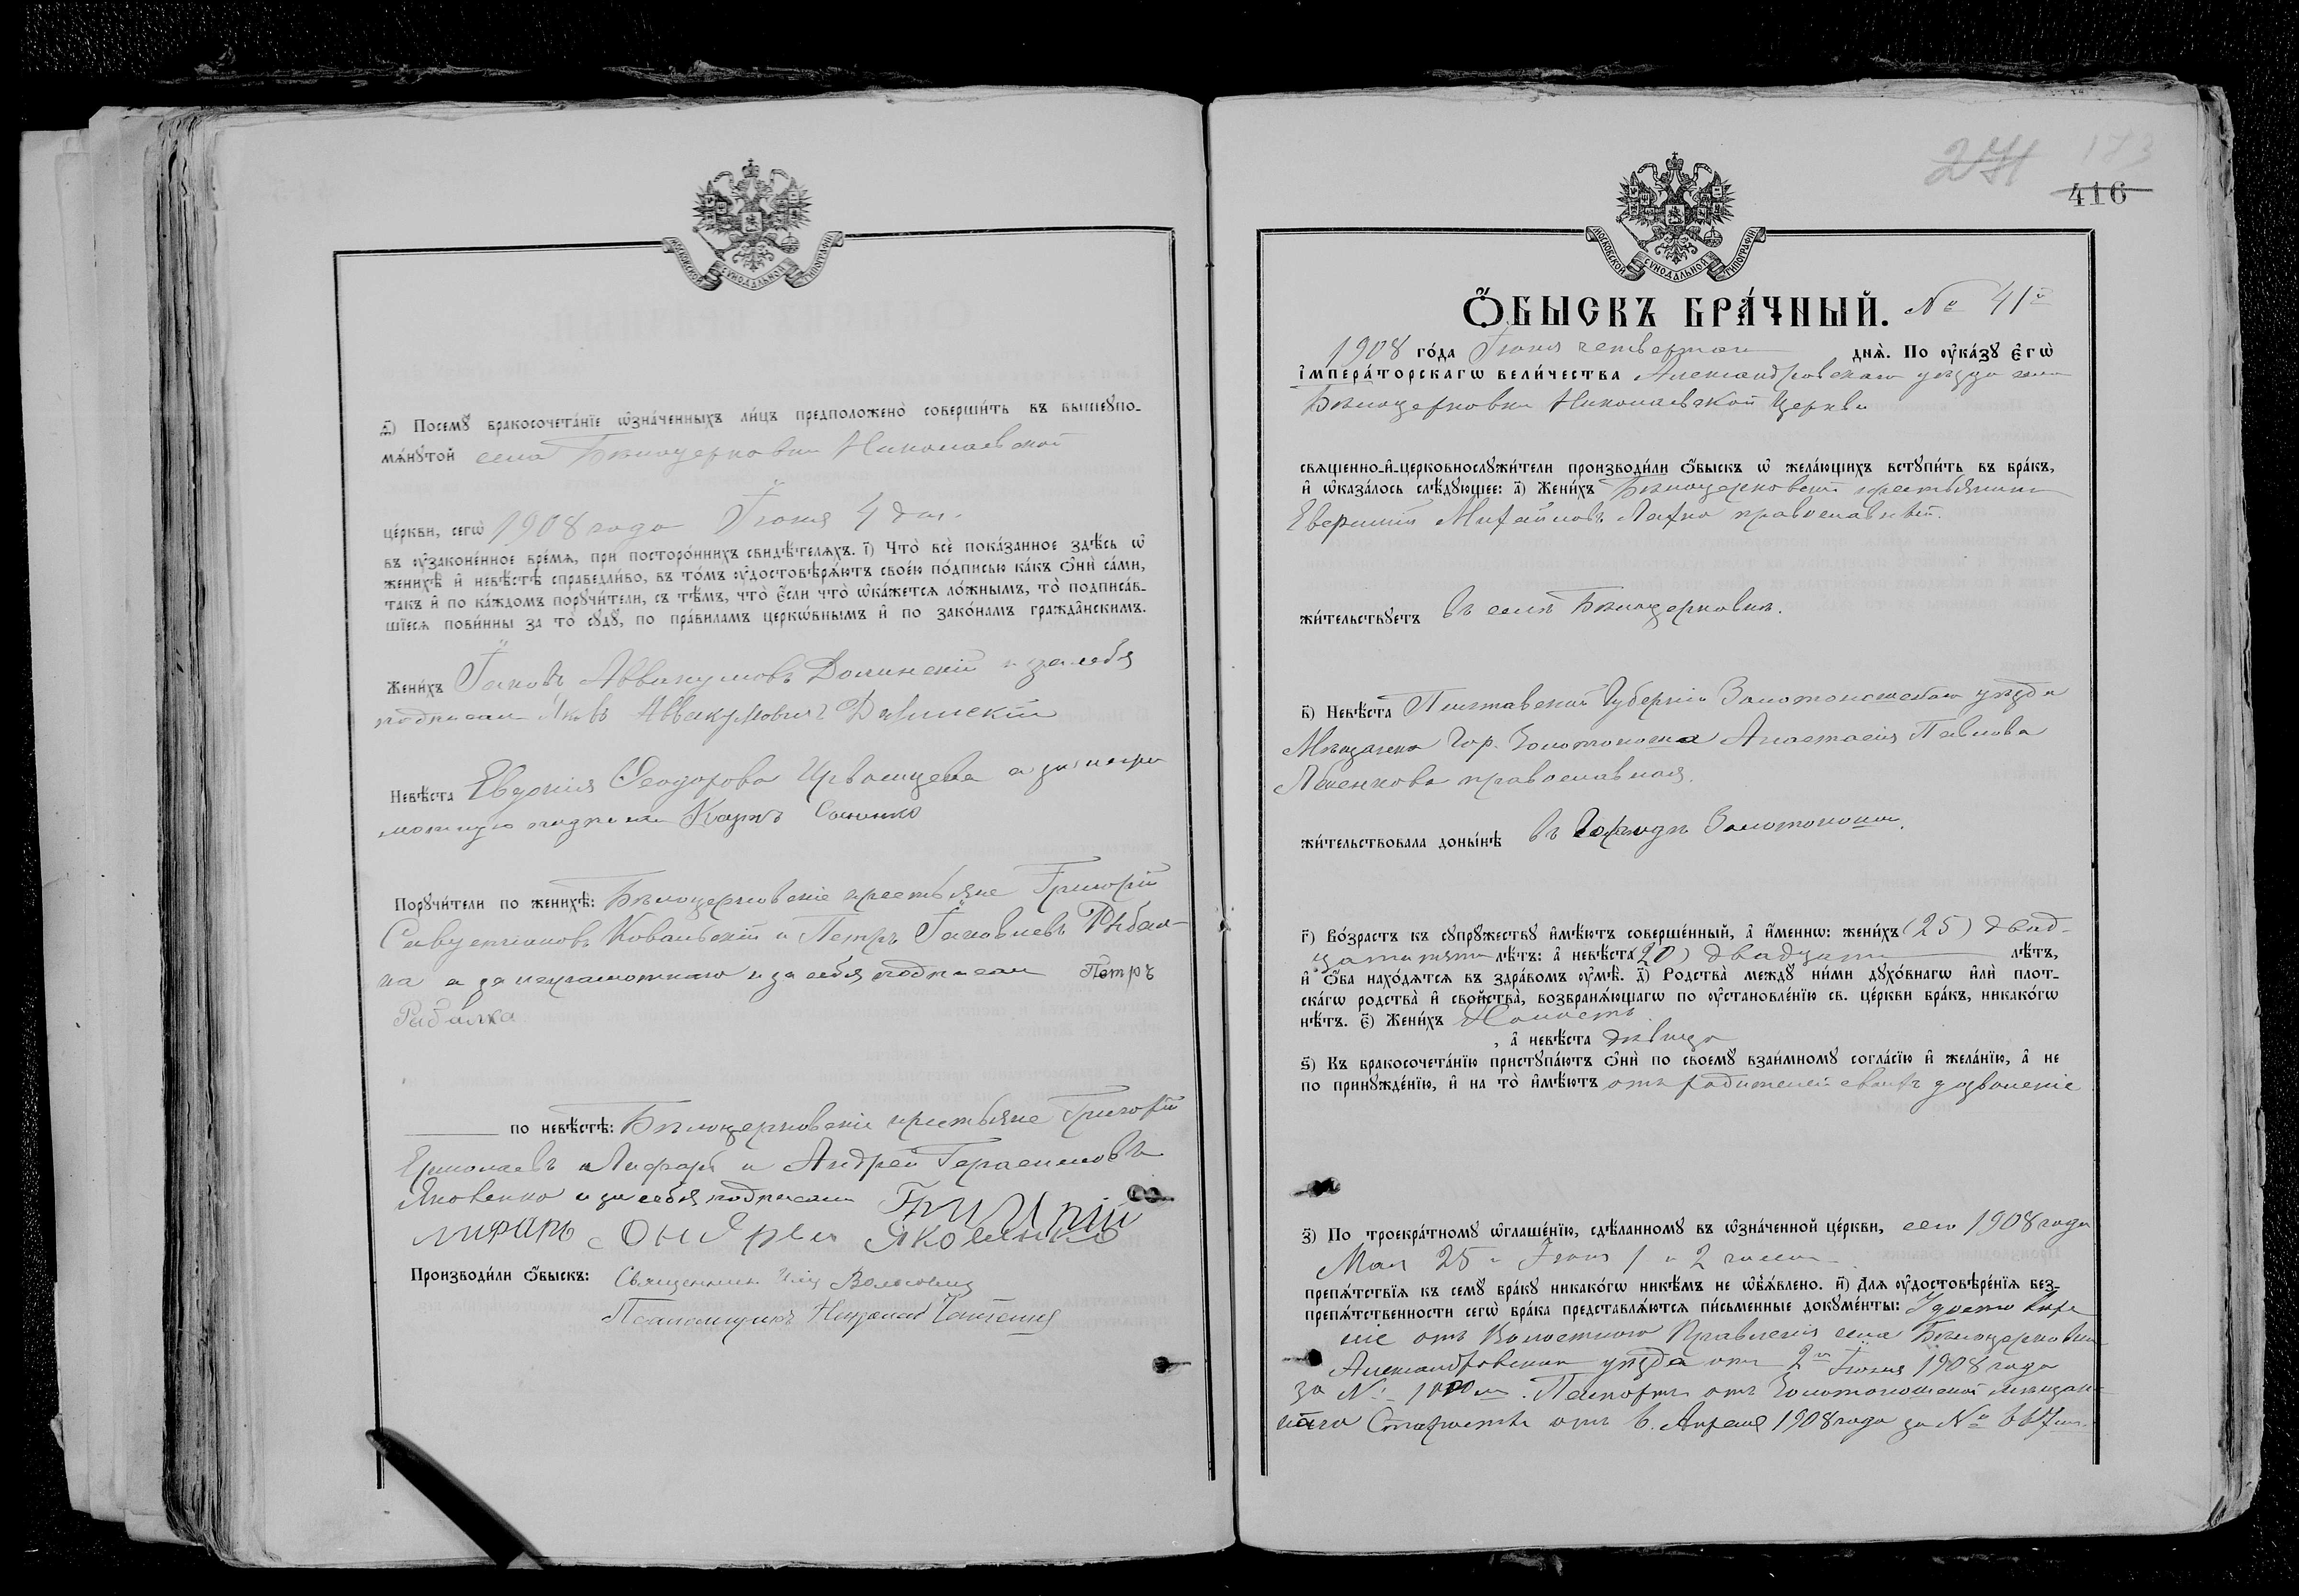 МОСКОВСКОЙ СѴНОДАЛЬНОЙ ТИПОГРАФІИ
д҃і) Посемꙋ бракосочета́нїе ѡ҆зна́ченныхъ ли́цъ предположено̀ соверши́ть въ вышеꙋпо-
мѧ́нꙋтой села Бѣлоцерковки Николаевской
це́ркви, сегѡ̀ 1908 года Іюня 4 дня.
въ ѹ҆законе́нное вре́мѧ, при посторо́ннихъ свидѣ́телѧхъ. і҃) Что̀ всѐ пока́занное здѣ́сь ѡ҆
женихѣ̀ и҆ невѣ́стѣ справедли́во, въ то́мъ ѹ҆достовѣрѧ́ютъ свое́ю по́дписью ка́къ ѻ҆нѝ са́ми,
такъ и҆ по ка́ждомъ порꙋчи́тели, съ тѣ́мъ, что̀ є҆́сли что̀ ѡ҆ка́жетсѧ ло́жнымъ, то̀ подписа́в-
шїесѧ пови́нны за то̀ сꙋдꙋ̀, по пра́виламъ церко́внымъ и҆ по зако́намъ гражда́нскимъ.
Жени́хъ Іаковъ Аввакумовъ Долинскій и за себя
подписал Яковъ Аввакумовичъ Долинскій
Невѣ́ста Евдокія Ѳеодорова а за неграмотную подписал Карпъ
Порꙋчи́тели по женихѣ̀: Бѣлоцерковскіе крестьяне Григорій
Ковальскій и Петръ Іаковлевъ Рыбал-
ка а за неграмотнаго и за себя подписал Петръ
Рыбалка
по невѣ́стѣ: Бѣлоцерковскіе крестьяне Григорій
Ермолаевъ Лифарь и Андрей Герасимовъ
Яковенко и за себя подписали Григорій
Лифарь Яковенко
Производи́ли ѻ҆́быскъ: Священникъ
Псаломщикъ Николай
271 173
416
МОСКОВСКОЙ СѴНОДАЛЬНОЙ ТИПОГРАФІИ
Ѻ҆́БЫСКЪ БРА́ЧНЫЙ. № 41й
1908 го́да Іюня четвертаго днѧ̀. По ѹ҆ка́зꙋ є҆гѡ̀
і҆мпера́торскагѡ вели́чества Александровскаго уѣзда села
Бѣлоцерковки Николаевской Церкви
свѧщенно-и҆-церковнослꙋжи́тели производи́ли ѻ҆́быскъ ѡ҆ жела́ющихъ встꙋпи́ть въ бра́къ,
и҆ ѡ҆каза́лось слѣ́дꙋющее: а҃) Жени́хъ Бѣлоцерковскій крестьянинъ
Михайловъ Лахно православный.
жи́тельствꙋетъ въ селѣ Бѣлоцерковкѣ.
в҃) Невѣ́ста Полтавской Губерніи Золотоношскаго уѣзда
Мѣщанка Гор. Золотоноша Анастасія Павлова
православная.
жи́тельствовала доны́нѣ въ Городѣ Золотоноши.
г҃) Во́зрастъ къ сꙋпрꙋжествꙋ и҆мѣ́ютъ соверше́нный, а҆ и҆́меннѡ: жени́хъ (25) двад-
цати пяти лѣ́тъ: а҆ невѣ́ста (20) двадцати лѣ́тъ,
и҆ ѻ҆́ба нахо́дѧтсѧ въ здра́вомъ ѹ҆мѣ̀. д҃) Родства̀ междꙋ ни́ми дꙋхо́внагѡ и҆лѝ плот-
ска́гѡ родства̀ и҆ сво́йства, возбранѧ́ющагѡ по ѹ҆становле́нїю св. це́ркви бра́къ, никако́гѡ
нѣ́тъ. є҃) Жени́хъ Холостъ
, а҆ невѣ́ста дѣвица
ѕ҃) Къ бракосочета́нїю пристꙋпа́ютъ ѻ҆нѝ по своемꙋ̀ взаи́мномꙋ согла́сїю и҆ жела́нїю, а҆ не
по принꙋжде́нїю, и҆ на то̀ и҆мѣ́ютъ отъ родителей своихъ дозволеніе
з҃) По троекра́тномꙋ ѡ҆глаше́нїю, сдѣ́ланномꙋ въ ѡ҆зна́ченной це́ркви, сего 1908 года
Мая 25 и Іюня 1 и 2 чиселъ
препѧ́тствїѧ къ семꙋ̀ бра́кꙋ никако́гѡ никѣ́мъ не ѡ҆б̾ѧ́влено. и҃) Длѧ ѹ҆достовѣре́нїѧ без-
препѧ́тственности сегѡ̀ бра́ка представлѧ́ютсѧ пи́сьменные докꙋме́нты: Удостовѣре
ніе отъ Волостного Правленія села Бѣлоцерковки
Александровскаго уѣзда отъ 2го Іюня 1908 года
за № Паспортъ отъ Золотоношской мѣщан-
скаго Старосты отъ 6. Апреля 1908 года за №